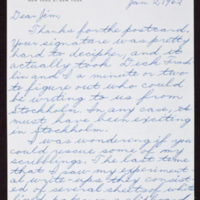 NEW YORK 21, NEW YORK
Jan 2, 1962
Dear Jim,
Thanks for the postcard.
Your signature was pretty
hard to decipher, and it
actually took Dick Frank
lin and I a minute or two
to figure out who could
be writing to us from
Stockholm. In any case, it
must have been exciting
in Stockholm.
I was wondering if you
could rescue some of my
scribblings. The last time
that I saw my experiment
al write-ups they consist
ed of several sheets of white